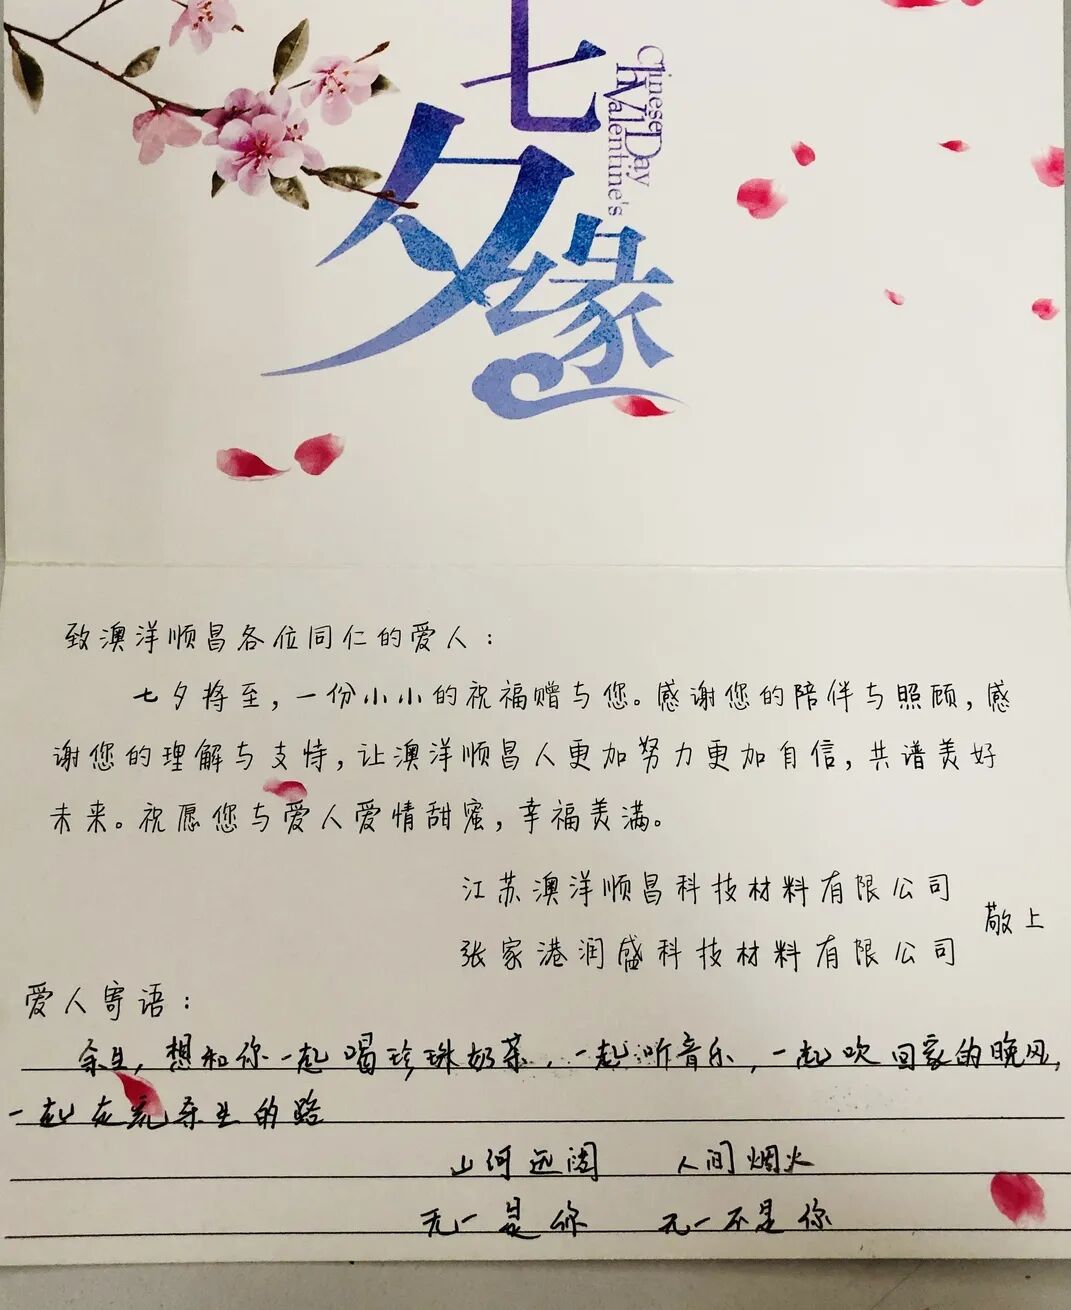 七夕缘
Chinese Valentine's Day
致澳洋顺昌各位同仁的爱人：
七夕将至，一份小小的祝福赠与您。感谢您的陪伴与照顾，感
谢您的理解与支持，让澳洋顺昌人更加努力更加自信，共谱美好
未来。祝愿您与爱人爱情甜蜜，幸福美满。
江苏澳洋顺昌科技材料有限公司
张家港润盛科技材料有限公司
敬上
爱人寄语：
余生，想和你一起喝珍珠奶茶，一起听音乐，一起吹回家的晚风，
一起走完余生的路
山河远阔 人间烟火
无一是你 无一不是你